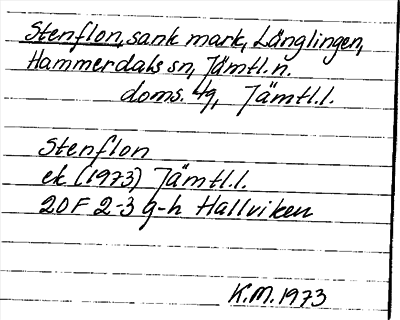 Stenflon, sank mark, Länglingen,
Hammerdals sn, Jämtl. n.
doms. 4g, Jämtl. l.
Stenflon
ek (1973) Jämtl. l.
20F 2-3 g-h Hallviken
K.M. 1973